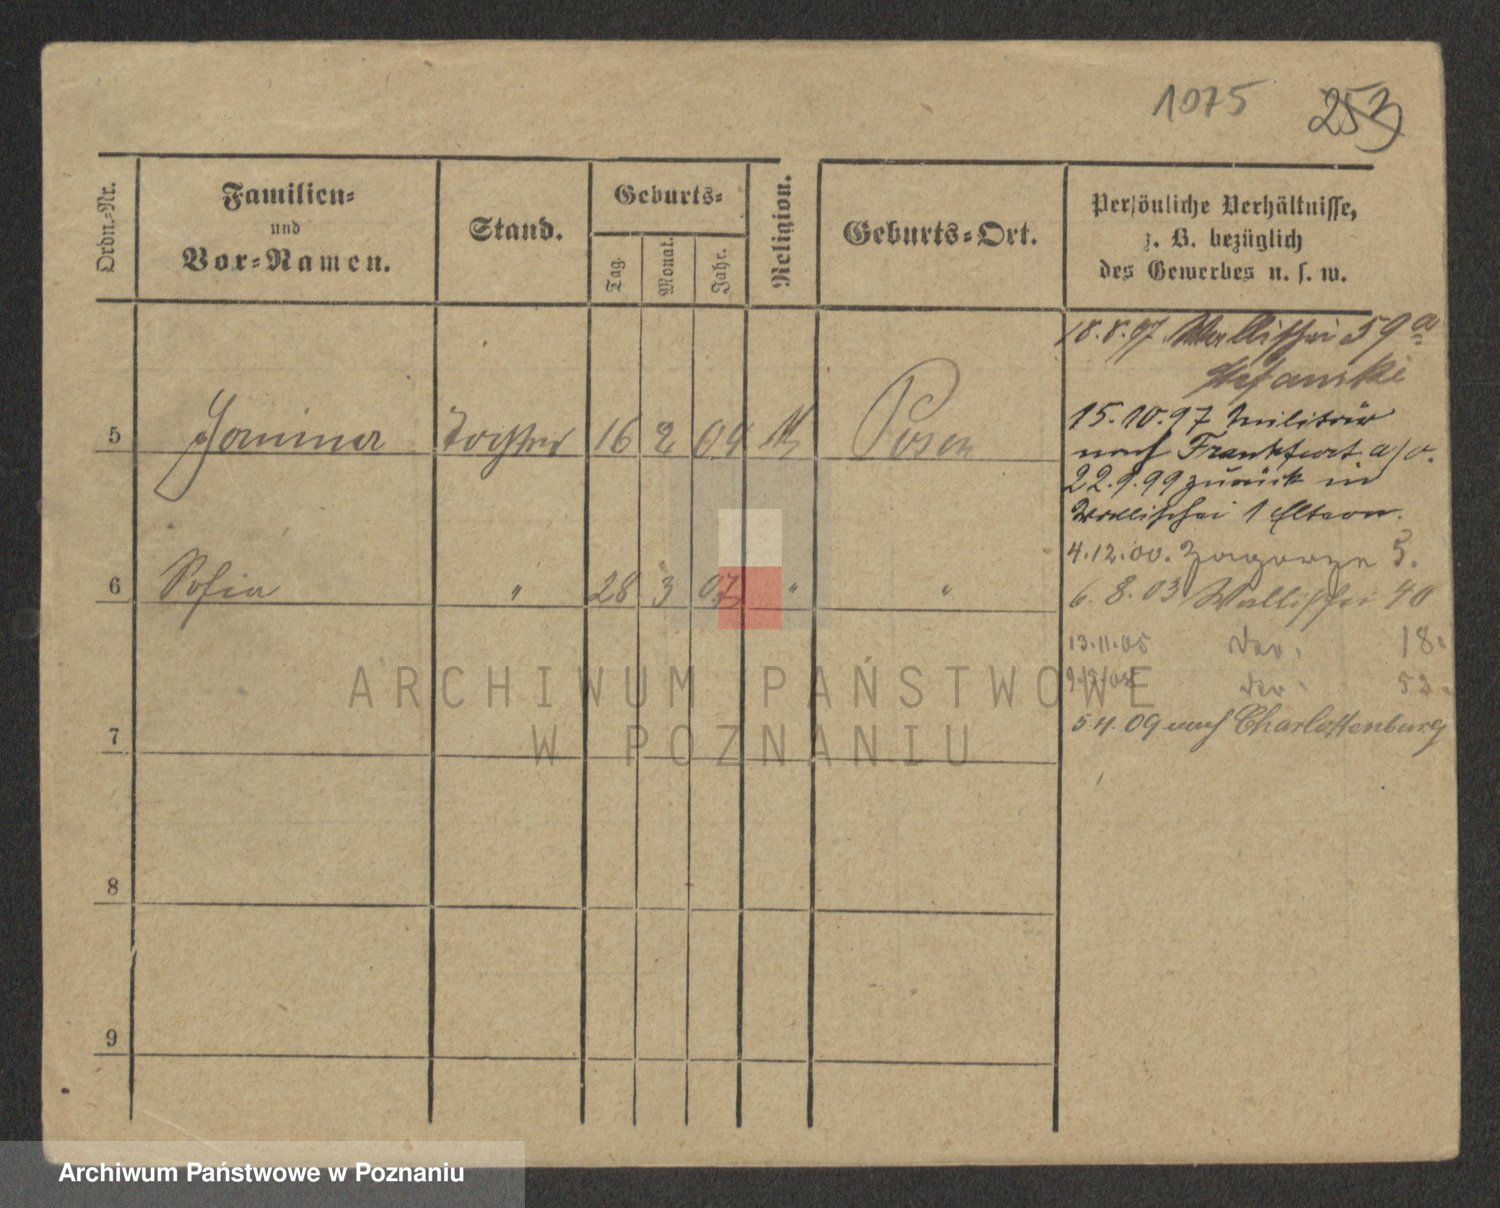 1075 253
Ordn.-Nr.
Familien-
und
Vor-Namen.
Stand.
Geburts-
Tag.
Monat.
Jahr.
Religion.
Geburts-Ort.
Persönliche Verhältnisse,
z. B. bezüglich
des Gewerbes u. s. w.
18.8.97 Wallischei 59a
Stefanski
5 Tochter 16 2 04 K Posen
15.10.97 Militär
nach Frankfurt a/o.
22.9.99 zurück in
Wallischei 1 Eltern.
4.12.00. Zagorze 5.
6 Sofia " 28 3 07 " "
6.8.03 Wallischei 40
13.11.05 18.
52.
5.4.09 nach Charlottenburg
7
8
9
ARCHIWUM PAŃSTWOWE
W POZNANIU
Archiwum Państwowe w Poznaniu